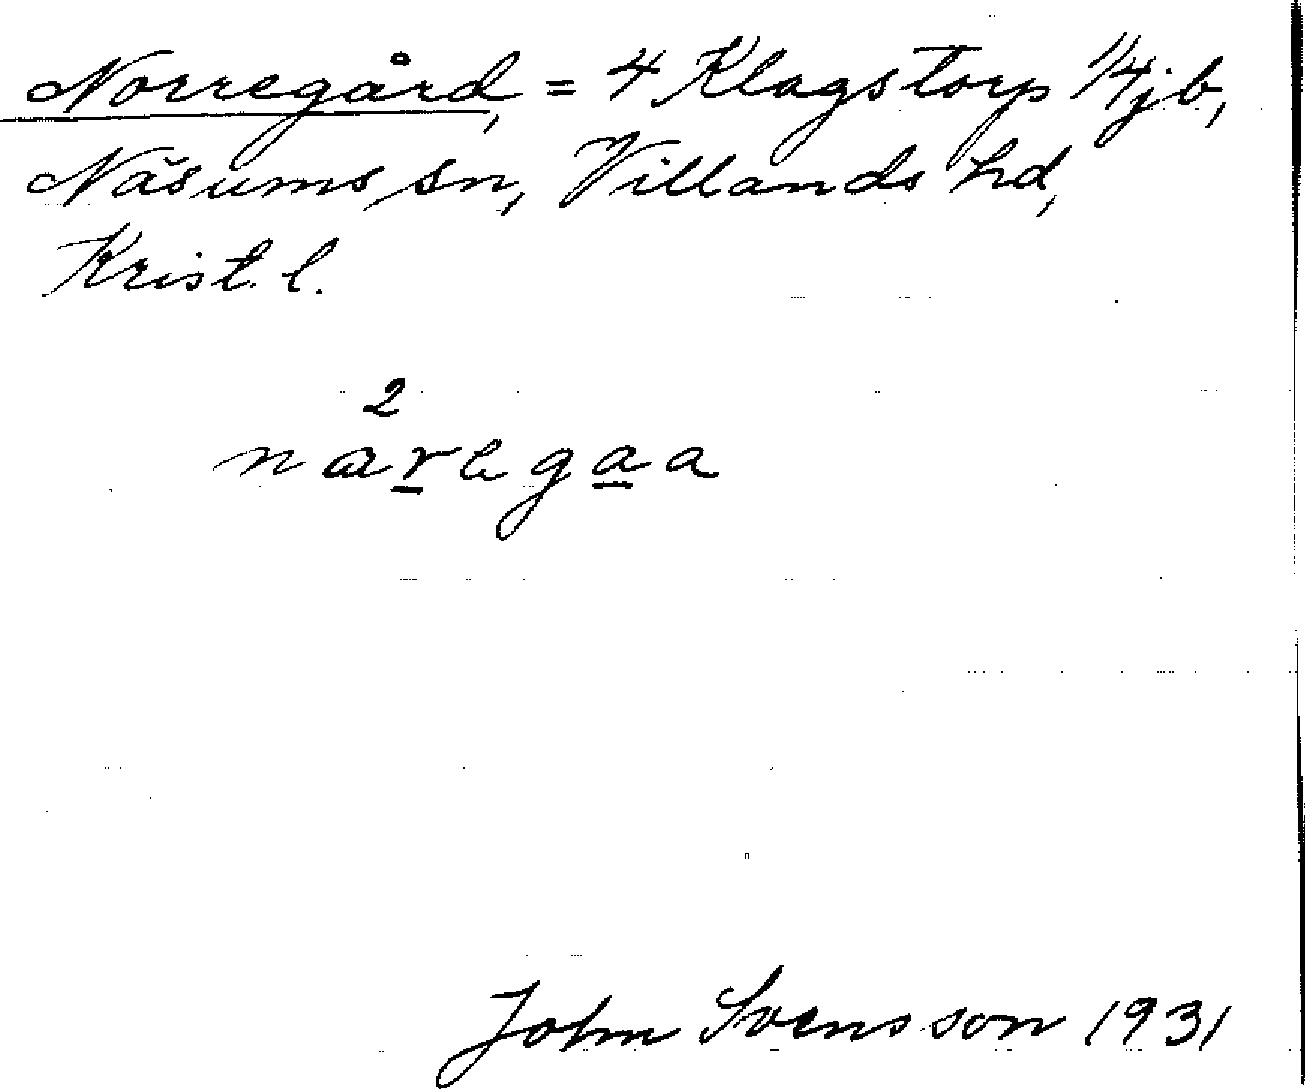 Norregård, = 4 Klagstorp 1/4 jb,
Näsums sn, Villands hd,
Krist. l.
2
nåregaa
John Svensson 1931